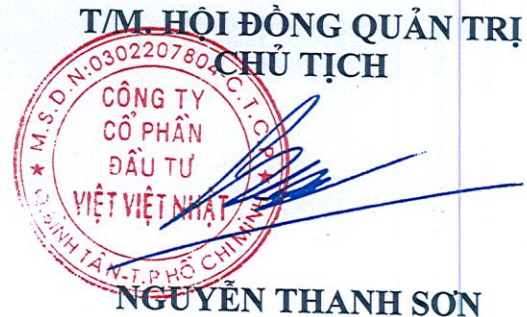 T/M. HỘI ĐỒNG QUẢN TRỊ
CHỦ TỊCH
M.S.D.N:0302207804-C.T.C.P
CÔNG TY
CỔ PHẦN
ĐẦU TƯ
VIỆT VIỆT NHẬT
Q.BÌNH TÂN-T.P HỒ CHÍ MINH
NGUYỄN THANH SƠN